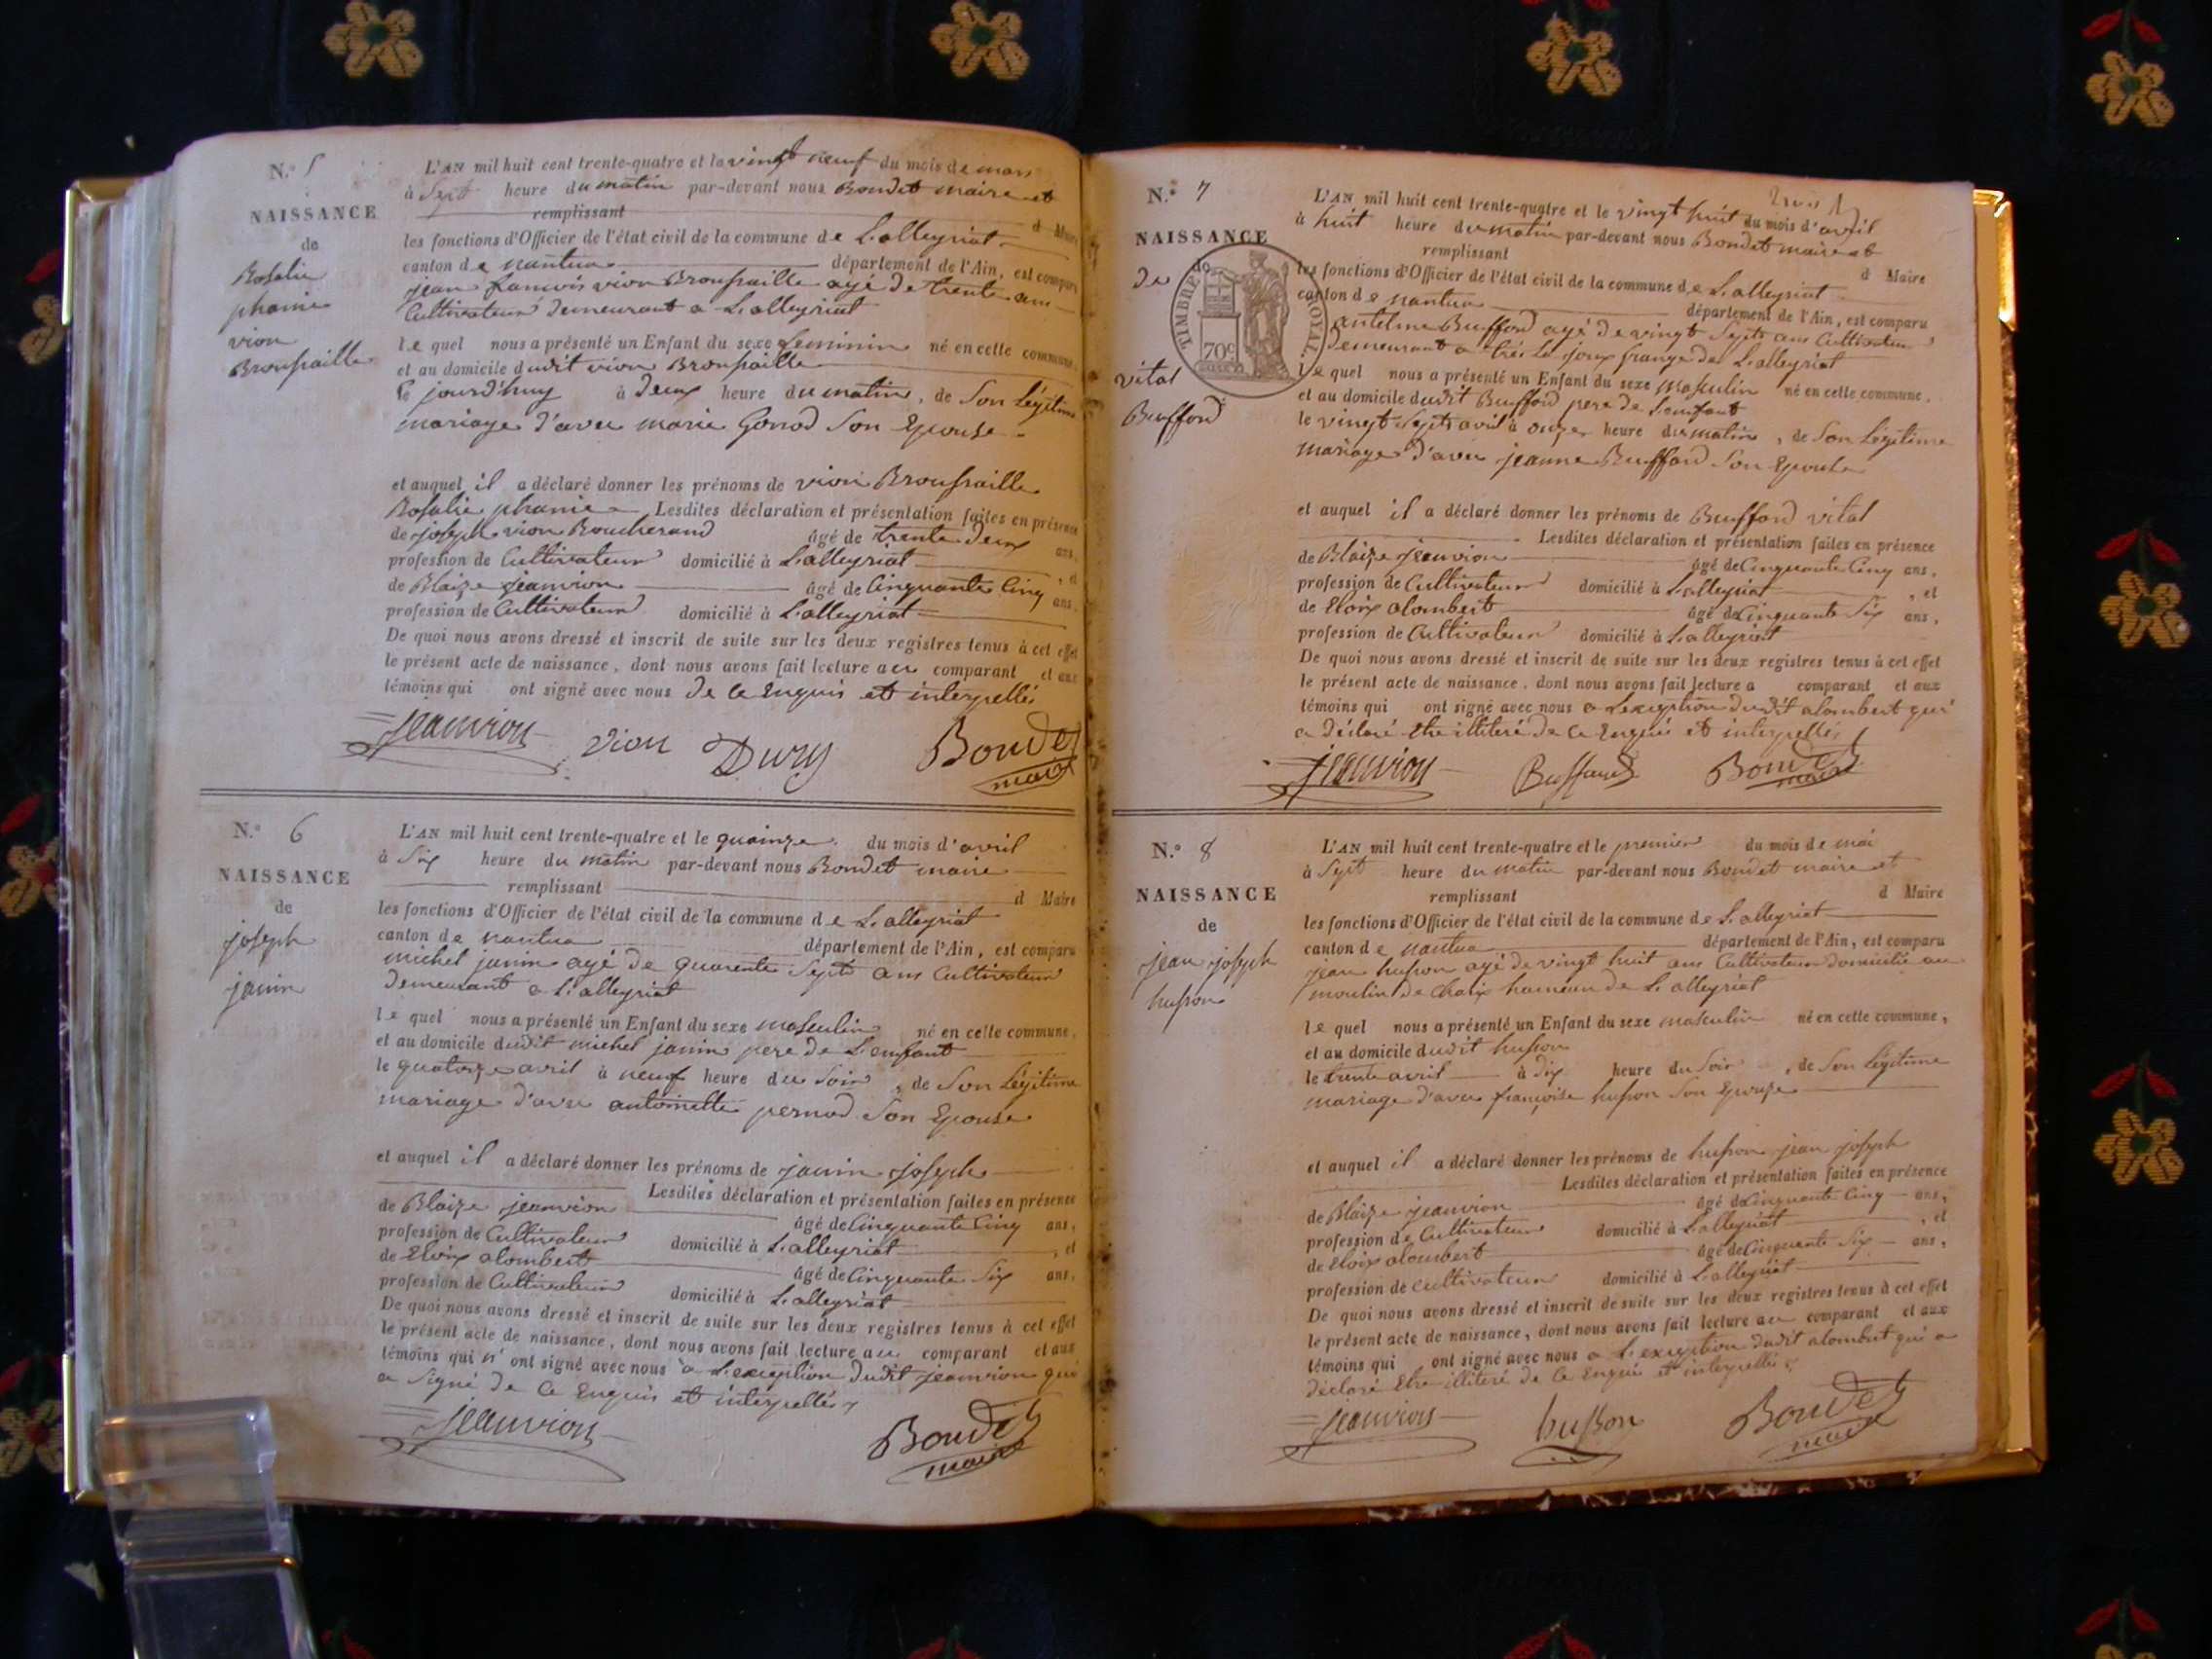 N.° 5
NAISSANCE
de
Rosalie
phanie
vion
Broussaille
L'AN mil huit cent trente-quatre et le vingt neuf du mois de mars
à Sept heure du matin par-devant nous Boudet maire et
remplissant d Maire
les fonctions d'Officier de l'état civil de la commune de L'alleyriat
canton de nantua département de l'Ain, est comparu
jean francois vion Broussaille agé de trente ans
Cultivateur demeurant a L'alleyriat
le quel nous a présenté un Enfant du sexe feminin né en cette commune,
et au domicile dudit vion Broussaille
le jourd'huy à deux heure du matin, de Son Légitime
mariage d'avec marie Gonod Son Epouse
et auquel il a déclaré donner les prénoms de vion Broussaille
Rosalie phanie Lesdites déclaration et présentation faites en présence
de joseph vion Boucherand âgé de trente deux ans,
profession de Cultivateur domicilié à L'alleyriat , et
de Blaize jeanvion âgé de Cinquante Cinq ans,
profession de Cultivateur domicilié à L'alleyriat
De quoi nous avons dressé et inscrit de suite sur les deux registres tenus à cet effet
le présent acte de naissance, dont nous avons fait lecture au comparant et aux
témoins qui ont signé avec nous de Ce Enquis et interpellés
jeanvion vion Dury Boudet
maire
N.° 6
NAISSANCE
de
joseph
janin
L'AN mil huit cent trente-quatre et le quainze du mois d'avril
à Six heure du matin par-devant nous Boudet maire
remplissant d Maire
les fonctions d'Officier de l'état civil de la commune de L'alleyriat
canton de nantua département de l'Ain, est comparu
michel janin agé de quarente Sept ans Cultivateur
demeurant a L'alleyriat
le quel nous a présenté un Enfant du sexe masculin né en cette commune,
et au domicile dudit michel janin pere de L'enfant
le quatorze avril à neuf heure du Soir, de Son Légitime
mariage d'avec antoinette pernod Son Epouse
et auquel il a déclaré donner les prénoms de janin joseph
Lesdites déclaration et présentation faites en présence
de Blaize jeanvion âgé de Cinquante Cinq ans,
profession de Cultivateur domicilié à L'alleyriat , et
de Eloix alombert âgé de Cinquante Six ans,
profession de Cultivateur domicilié à L'alleyriat
De quoi nous avons dressé et inscrit de suite sur les deux registres tenus à cet effet
le présent acte de naissance, dont nous avons fait lecture au comparant et aux
témoins qui n'ont signé avec nous a L'exeception dudit jeanvion qui
a Signé de Ce Enquis et interpellés
jeanvion Boudet
maire
N.° 7
NAISSANCE
de
TIMBRE ROYAL.
70c
vital
Buffard
L'AN mil huit cent trente-quatre et le vingt huit du mois d'avril
à huit heure du matin par-devant nous Boudet maire et
remplissant d Maire
les fonctions d'Officier de l'état civil de la commune de L'alleyriat
canton de nantua département de l'Ain, est comparu
antelme Buffard agé de vingt Sept ans Cultivateur
demeurant a joux grange de L'alleyriat
le quel nous a présenté un Enfant du sexe masculin né en cette commune,
et au domicile dudit Buffard pere de L'enfant
le vingt Sept avril à onze heure du matin, de Son Légitime
mariage d'avec jeanne Buffard Son Epouse
et auquel il a déclaré donner les prénoms de Buffard vital
Lesdites déclaration et présentation faites en présence
de Blaize jeanvion âgé de Cinquante Cinq ans,
profession de Cultivateur domicilié à L'alleyriat , et
de Eloix alombert âgé de Cinquante Six ans,
profession de Cultivateur domicilié à L'alleyriat
De quoi nous avons dressé et inscrit de suite sur les deux registres tenus à cet effet
le présent acte de naissance, dont nous avons fait lecture a comparant et aux
témoins qui ont signé avec nous a L'exeception dudit alombert qui
a déclaré être illiteré de Ce Enquis et interpellés
jeanvion Buffard Boudet
maire
N.° 8
NAISSANCE
de
jean joseph
husson
L'AN mil huit cent trente-quatre et le premier du mois de mai
à Sept heure du matin par-devant nous Boudet maire et
remplissant d Maire
les fonctions d'Officier de l'état civil de la commune de L'alleyriat
canton de nantua département de l'Ain, est comparu
jean husson agé de vingt huit ans Cultivateur domicilié au
moulin de Charix hameau de L'alleyriat
le quel nous a présenté un Enfant du sexe masculin né en cette commune,
et au domicile dudit husson
le trente avril à dix heure du Soir, de Son Légitime
mariage d'avec françoise husson Son Epouse
et auquel il a déclaré donner les prénoms de husson jean joseph
Lesdites déclaration et présentation faites en présence
de Blaize jeanvion âgé de Cinquante Cinq ans,
profession de Cultivateur domicilié à L'alleyriat , et
de Eloix alombert âgé de Cinquante Six ans,
profession de Cultivateur domicilié à L'alleyriat
De quoi nous avons dressé et inscrit de suite sur les deux registres tenus à cet effet
le présent acte de naissance, dont nous avons fait lecture au comparant et aux
témoins qui ont signé avec nous a L'exeception dudit alombert qui a
déclaré Etre illiteré de Ce Enquis et interpellés
jeanvion husson Boudet
maire